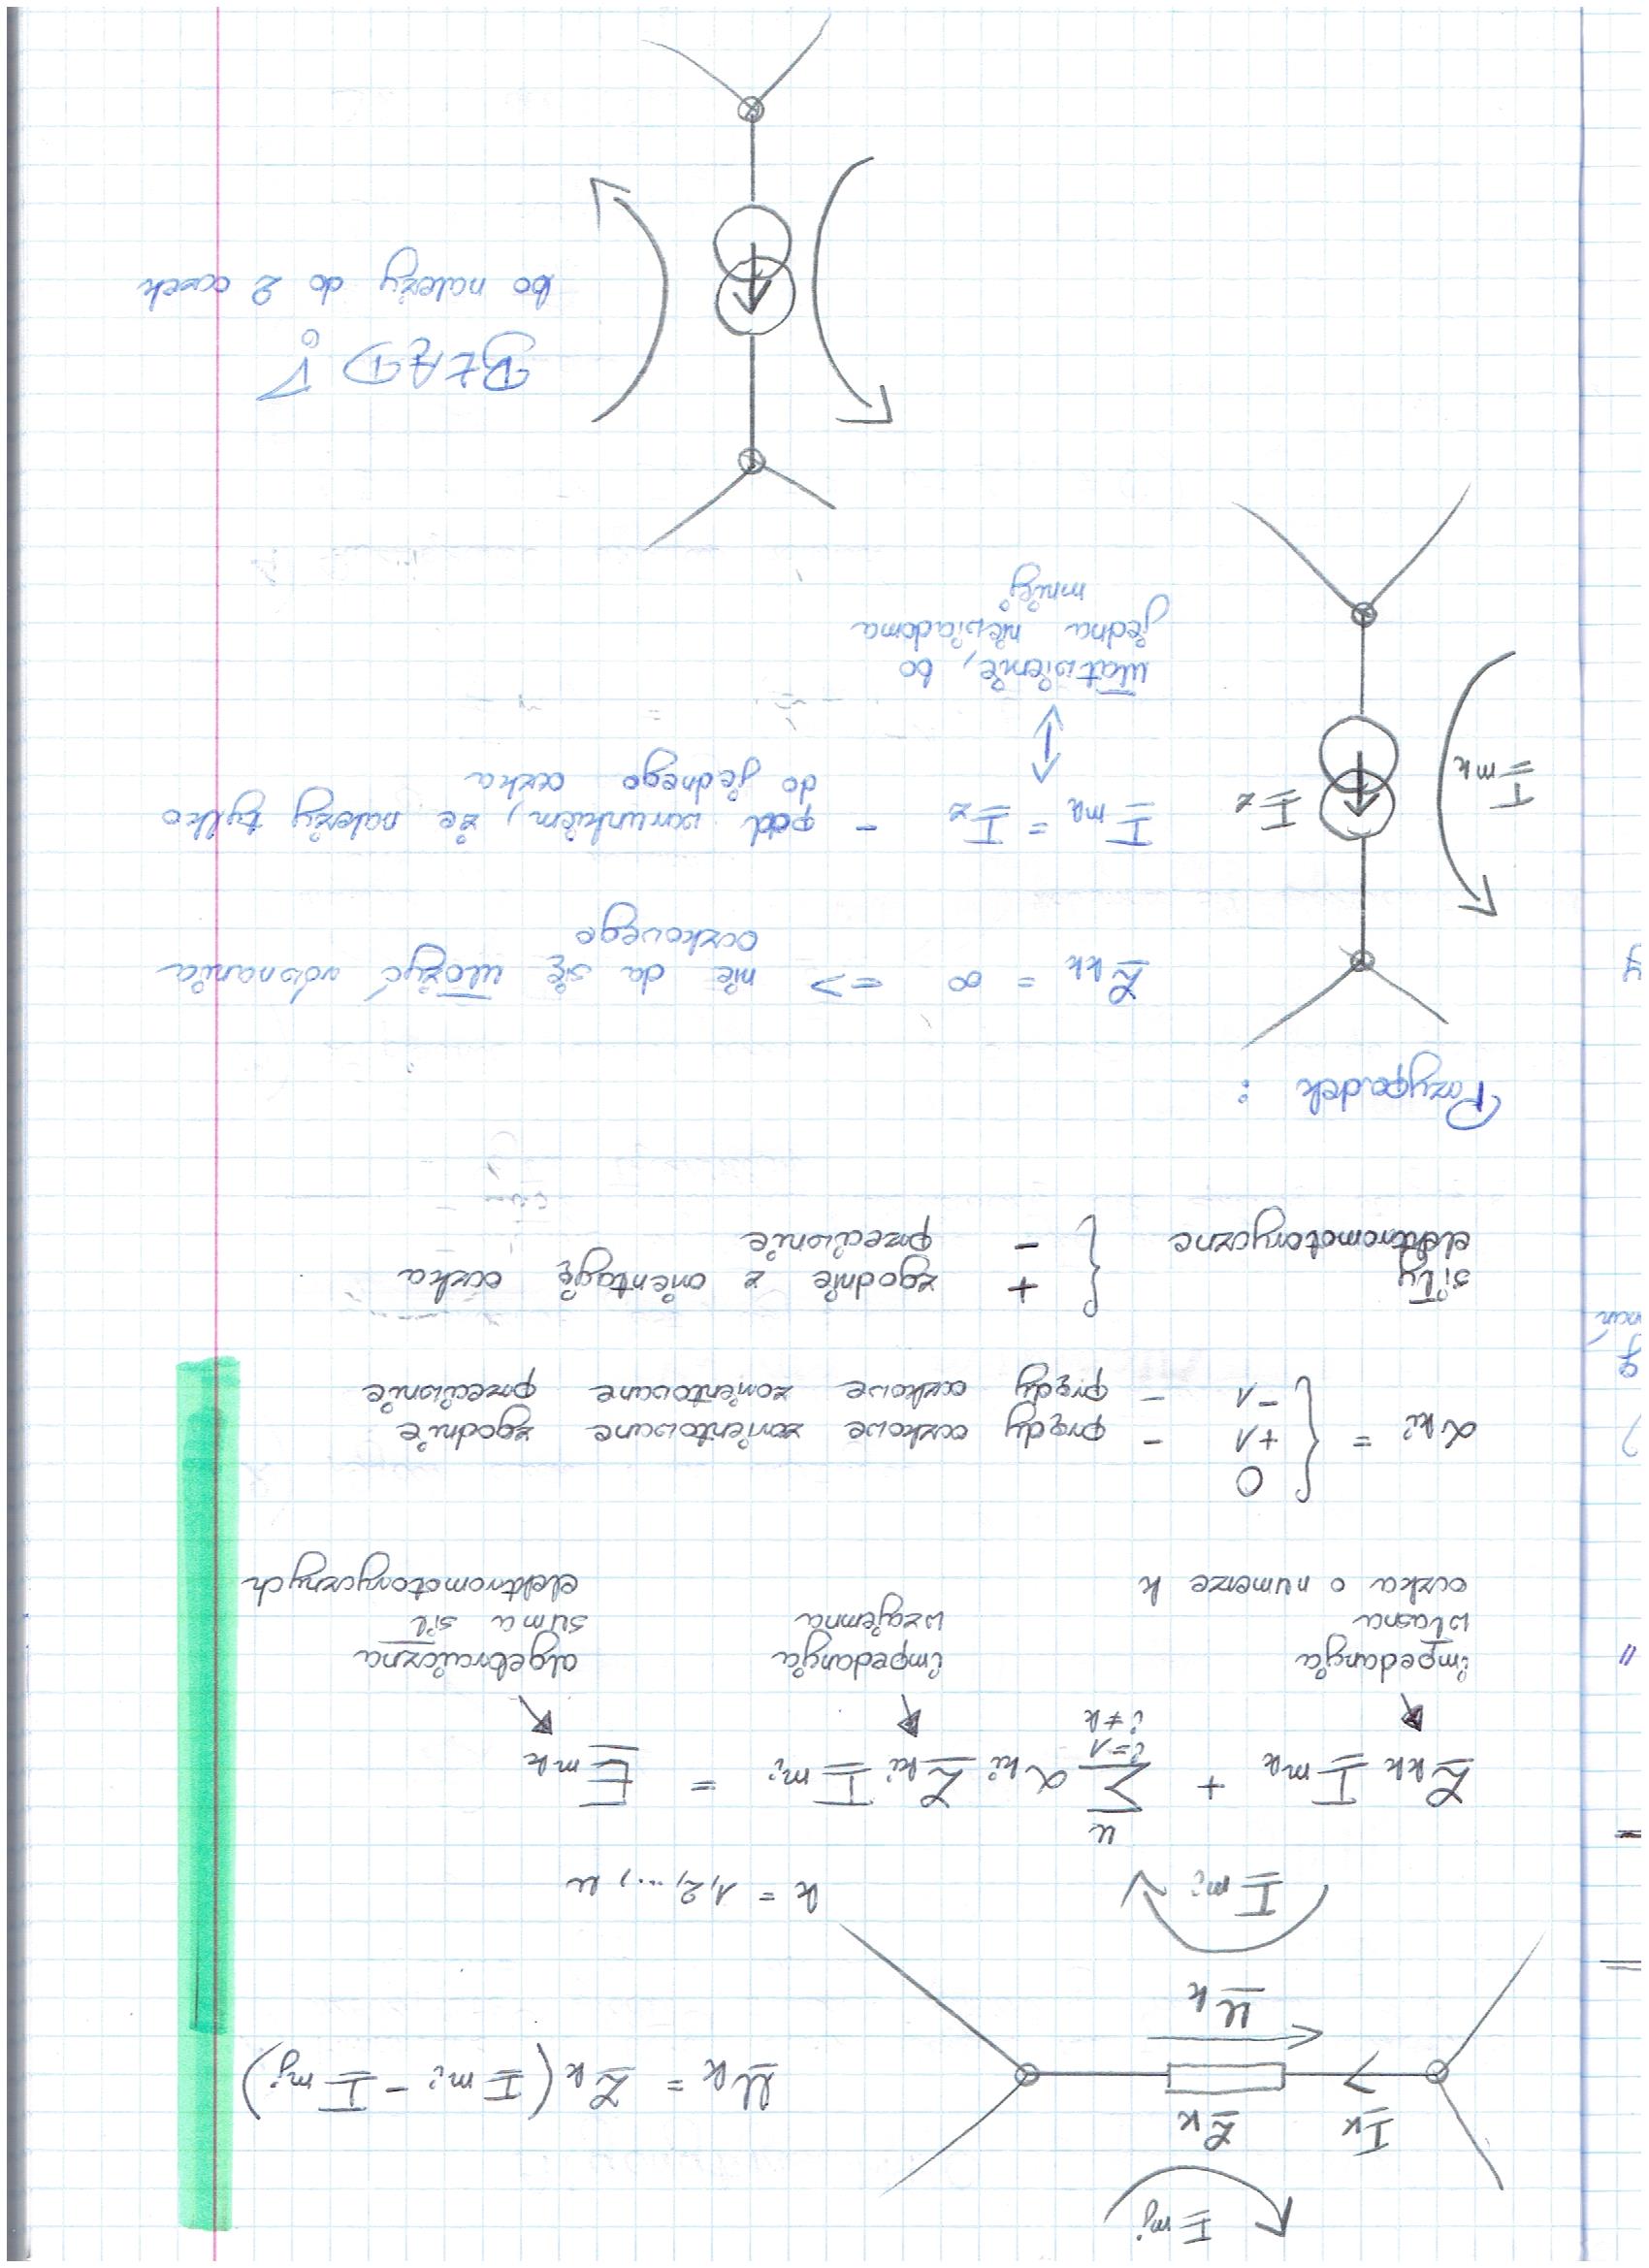 I mj
I k
Z k
U k = Z k ( I mi - I mj )
U k
I mi
k = 1,2,..., n
Z kk I mk + n ∑ i=1 i≠k α ki Z ki I mi = E mk
impedancja własna oczka o numerze k
impedancja wzajemna
algebraiczna suma sił elektromotorycznych
α ki = { 0
+1 - prądy oczkowe zorientowane zgodnie
-1 - prądy oczkowe zorientowane przeciwnie
siły elektromotoryczne { + zgodnie z orientacją oczka
- przeciwnie
Przypadek :
Z kk = ∞ => nie da się ułożyć równania oczkowego
I mk
I z
I mk = I z - pod warunkiem, że należy tylko do jednego oczka
ułatwienie, bo
jedna niewiadoma
mniej
BŁĄD !
bo należy do 2 oczek